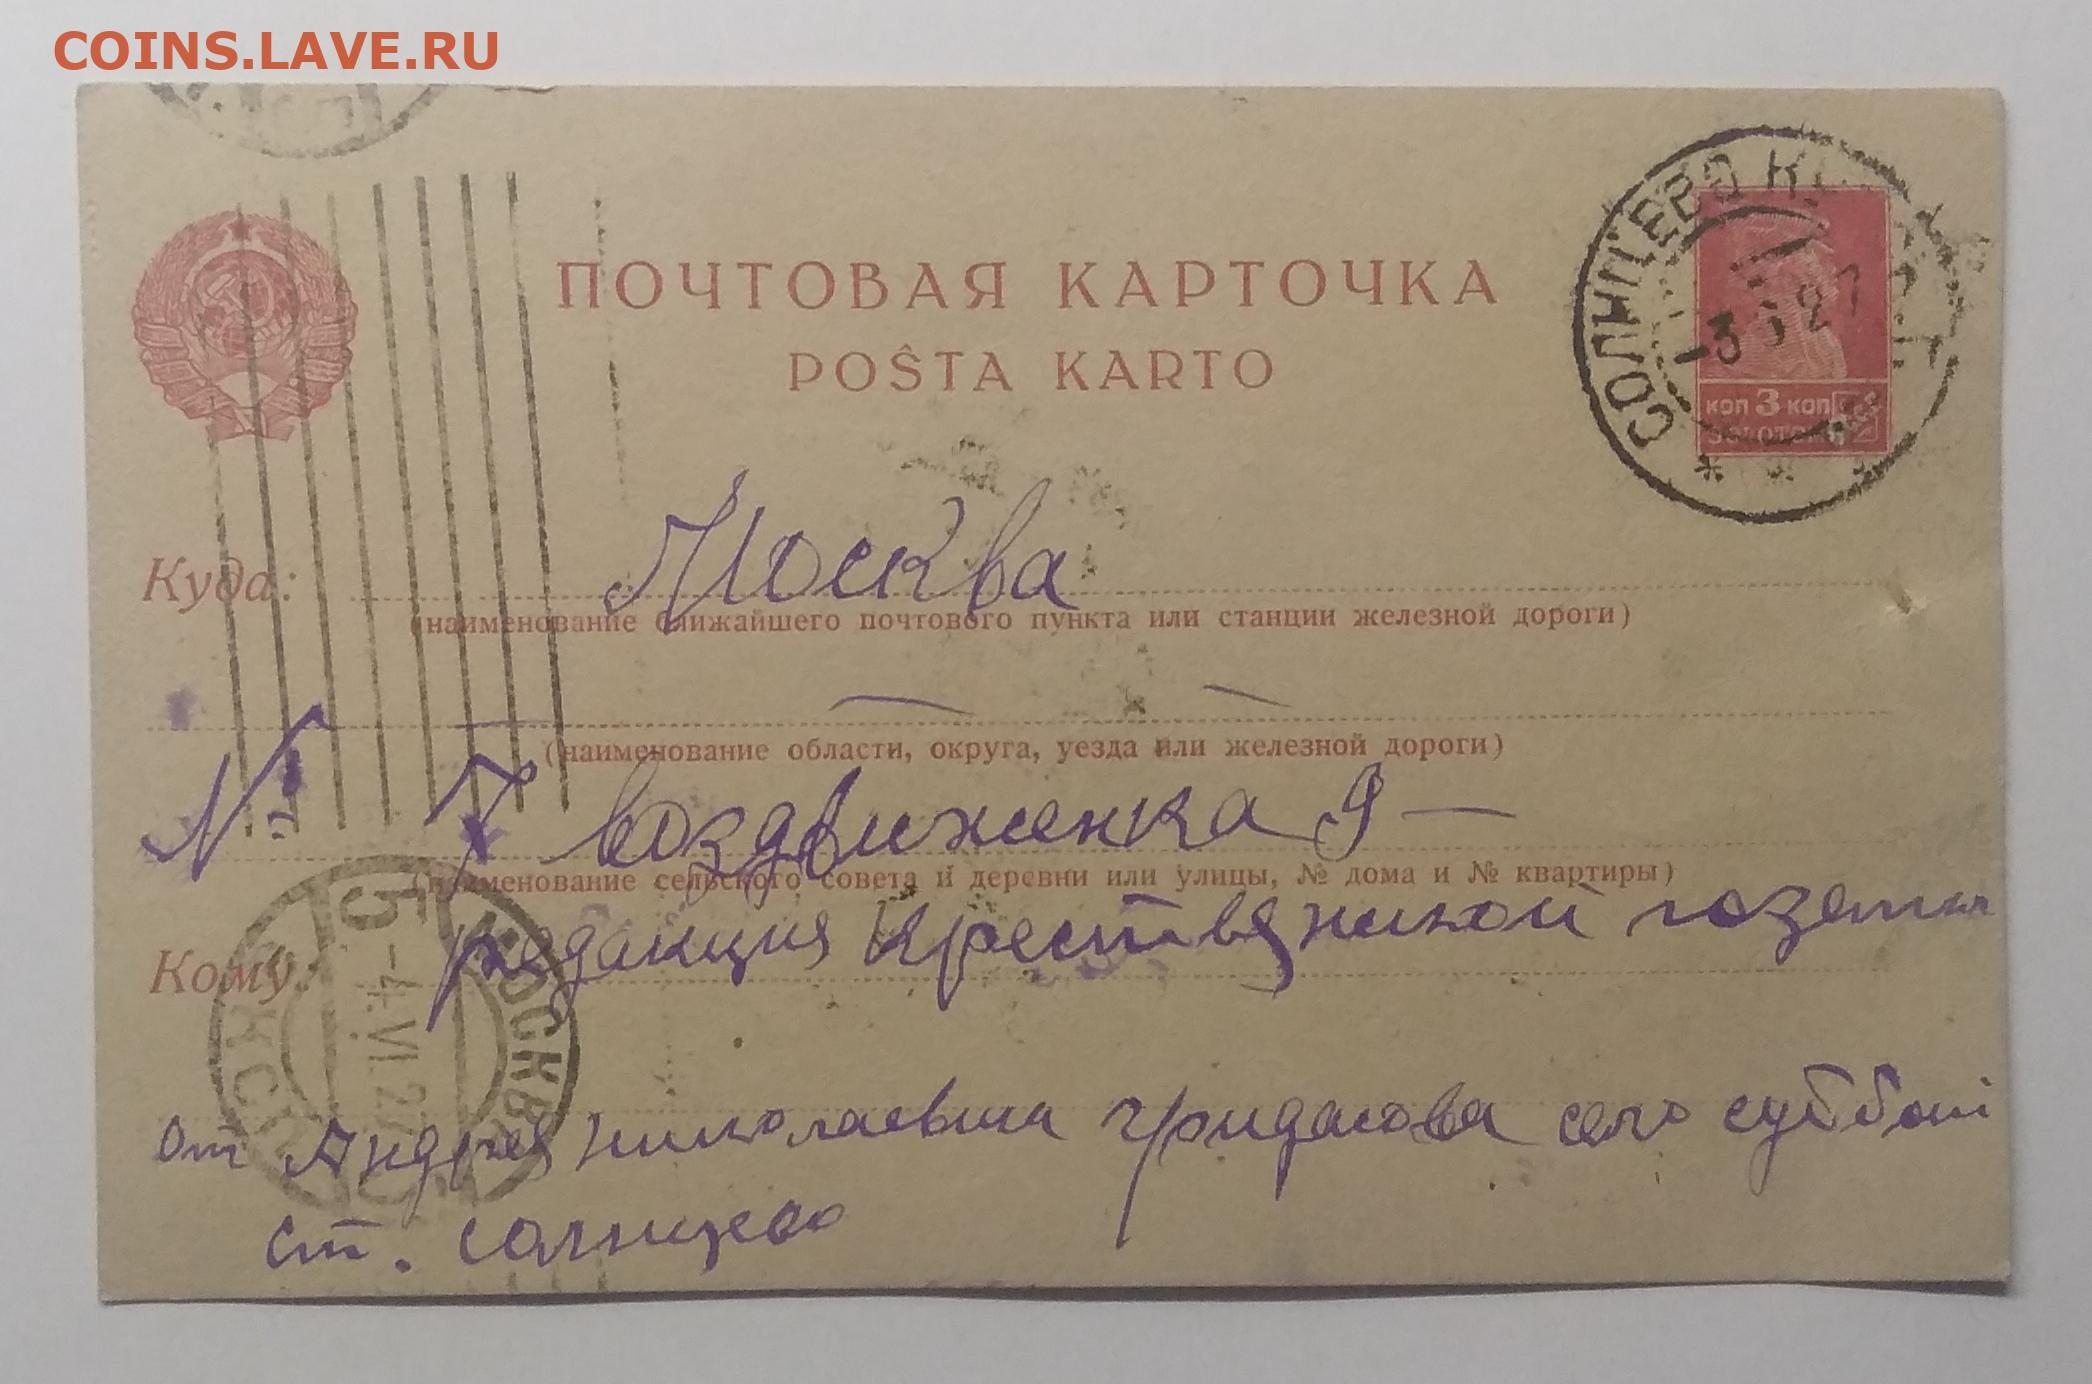 COINS.LAVE.RU
ПОЧТОВАЯ КАРТОЧКА
POŜTA KARTO
СОЛНЦЕВО
-3 6 27
КОП 3 КОП
Москва
Куда:
(наименование ближайшего почтового пункта или станции железной дороги)
(наименование области, округа, уезда или железной дороги)
№ 7 Воздвиженка 9 —
(наименование сельского совета и деревни или улицы, № дома и № квартиры)
редакция крестьянской газеты
Кому:
МОСКВА
5
-4.VI.27
от Андрея николаевича гридасова село субботі
ст. солнцево